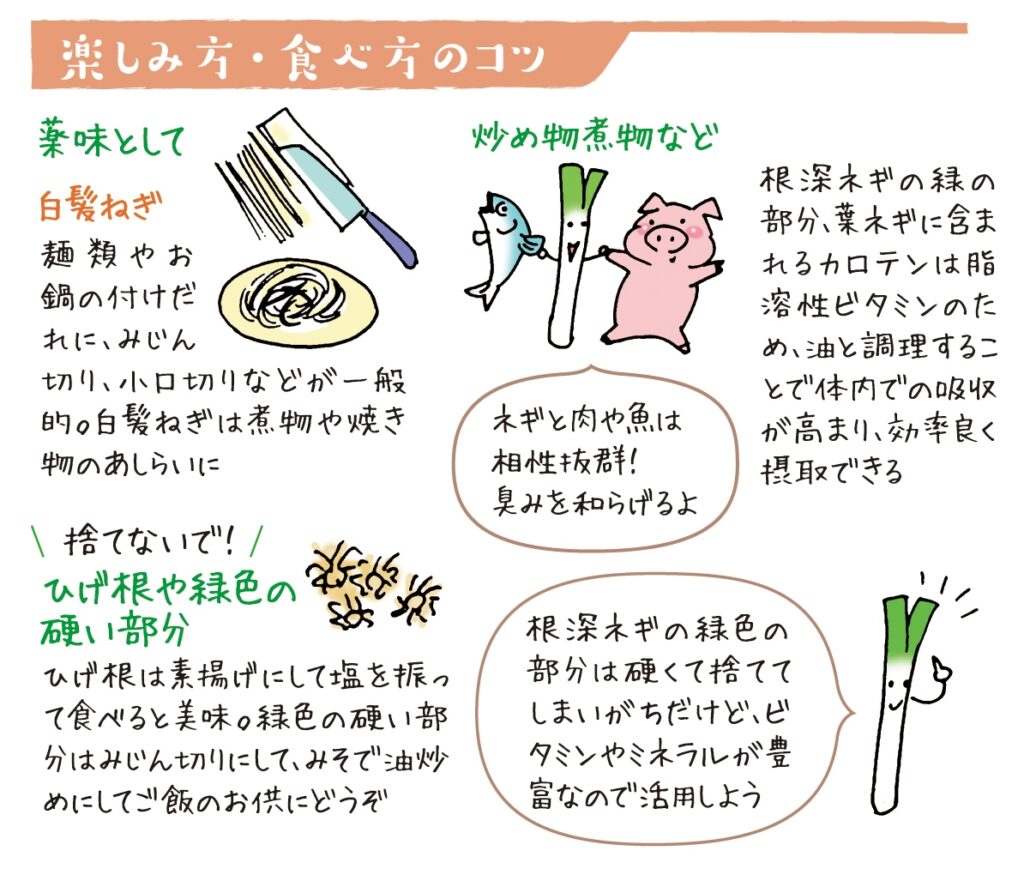 楽しみ方・食べ方のコツ
薬味として
白髪ねぎ
麺類やお
鍋の付けだ
れに、みじん
切り、小口切りなどが一般
的。白髪ねぎは煮物や焼き
物のあしらいに
炒め物煮物など
ネギと肉や魚は
相性抜群!
臭みを和らげるよ
根深ネギの緑の
部分、葉ネギに含ま
れるカロテンは脂
溶性ビタミンのた
め、油と調理するこ
とで体内での吸収
が高まり、効率良く
摂取できる
捨てないで!
ひげ根や緑色の
硬い部分
ひげ根は素揚げにして塩を振っ
て食べると美味。緑色の硬い部
分はみじん切りにして、みそで油炒
めにしてご飯のお供にどうぞ
根深ネギの緑色の
部分は硬くて捨てて
しまいがちだけど、ビ
タミンやミネラルが豊
富なので活用しよう